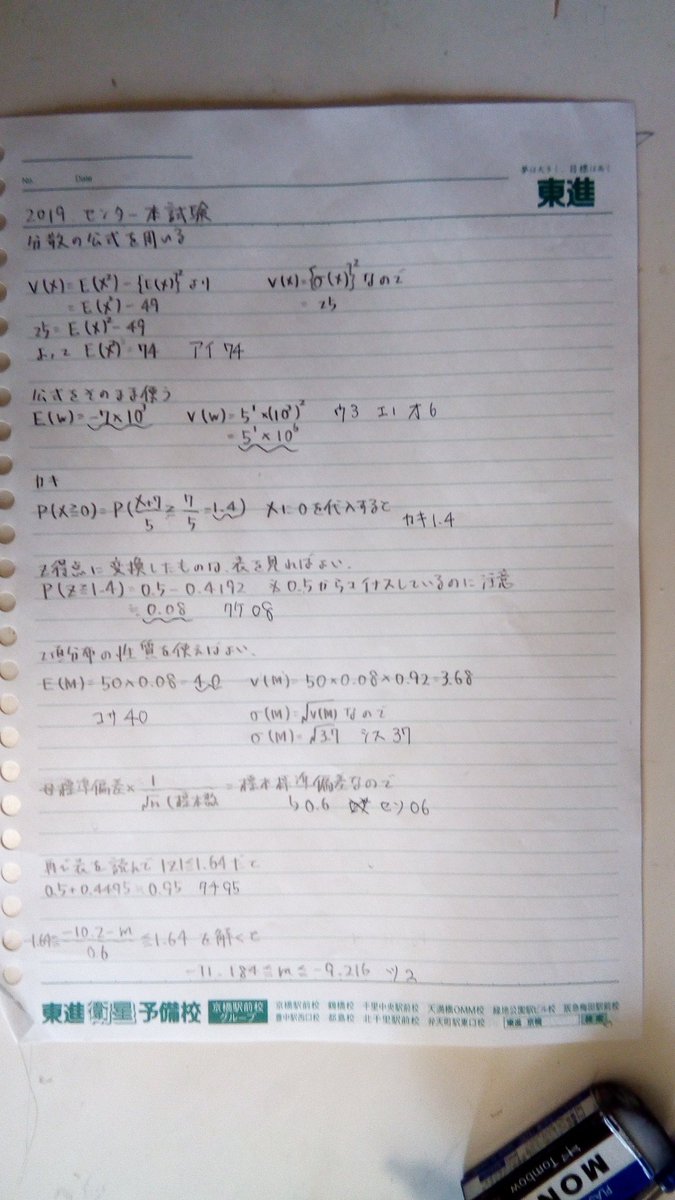 No.
Date
夢は大きく、目標は高く
東進
2019 センター本試験
分散の公式を用いる
V(X) = E(X²) - {E(X)}² より V(X) = {σ(X)}² なので
= E(X²) - 49 = 25
25 = E(X)² - 49
よって E(X²) = 74 アイ 74
公式をそのまま使う
E(W) = -7×10³ V(W) = 5²×(10³)² ウ3 エ オ6
= 5²×10⁶
カキ
P(X≧0) = P(X+7/5 ≧ 7/5 = 1.4) Xに0を代入すると
カキ1.4
Z得点に変換したものは、表を見ればよい.
P(Z≧1.4) = 0.5 - 0.4192 ※0.5からマイナスしているのに注意
≒ 0.08 クケ 08
二項分布の性質を使えばよい.
E(M) = 50×0.08 = 4.0 V(M) = 50×0.08×0.92 = 3.68
コサ 40 σ(M) = √V(M) なので
σ(M) = √3.7 シス 37
母標準偏差× 1/√n (標本数 = 標本標準偏差なので
0.6 セソ06
再び表を読んで |Z|≦1.64だと
0.5+0.4495=0.95 タチ95
-1.64≦ -10.2-m/0.6 ≦1.64 を解くと
-11.184 ≦ m ≦ -9.216 ツ2
東進衛星予備校
京橋駅前校
グループ
京橋駅前校 鶴橋校 千里中央駅前校 天満橋OMM校 緑地公園駅ビル校 阪急梅田駅前校
豊中駅西口校 都島校 北千里駅前校 弁天町駅東口校 東進 京橋 検索
Tombow
MONO